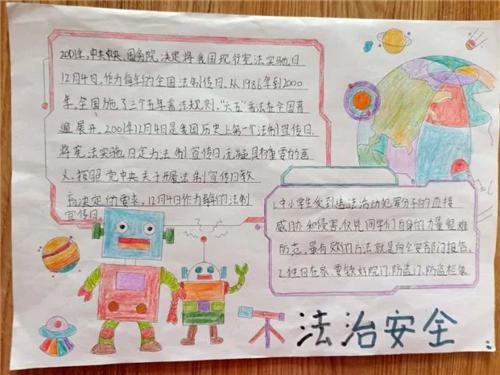 2001年,中共中央、国务院决定将我国现行宪法实施日
12月4日,作为每年的全国法制宣传日。从1986年到2000
年,全国施了三个五年普法规则,"六五"普法在全国普
遍展开。2001年12月4日是我国历史上第一个法制宣传日。
将宪法实施日定为法制宣传日,无疑具有重要的意
义,按照党中央关于开展法制宣传日教
12月4日作为每年的法制
宣传日。
1.中小学生受到违法活动犯罪分子的直接
威胁和侵害,仅凭同学们自身的力量很难
防范,最有效的方法就是向公安部门报告。
2.住日在家,要锁好院门、防盗门、防盗栏做
法治安全